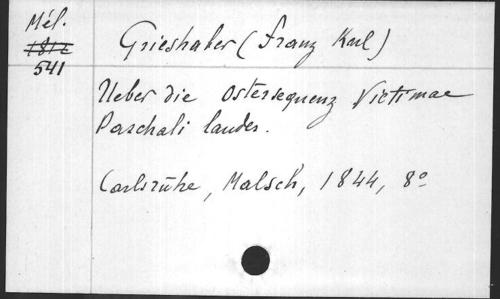 Mél.
1812
541
Grieshaber (Franz Karl)
Ueber die Ostersequenz Victimae
Paschali laudes.
Carlsruhe, Malsch, 1844, 8º